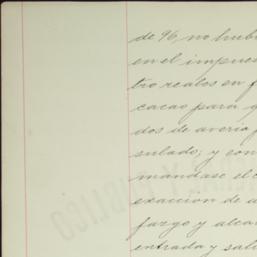 de 96, no hub
en el impues
tro reales en f
cacao para q
dos de averia
sulado; y con
mandase el c
exaccion de a
fargo y alca
entrada y sali